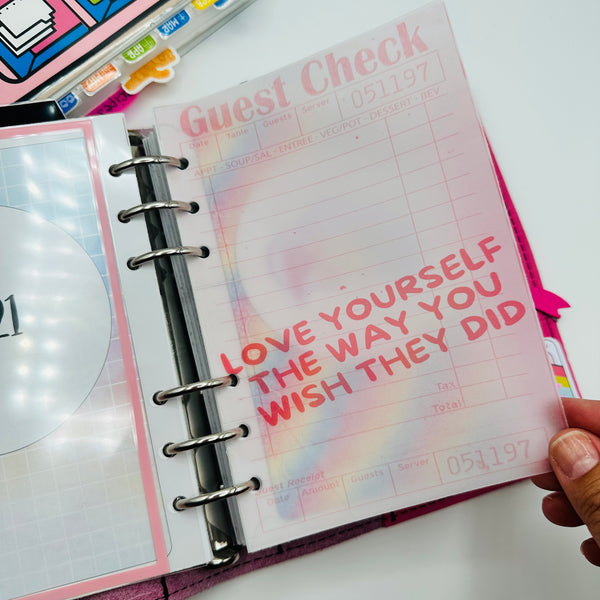 Guest Check
Date Table Guests Server 051197
APPT - SOUP/SAL - ENTREE - VEG/POT - DESSERT - BEV
LOVE YOURSELF
THE WAY YOU
WISH THEY DID
Tax
Total
Guest Receipt
Date Amount Guests Server 051197
21
MAR
APR